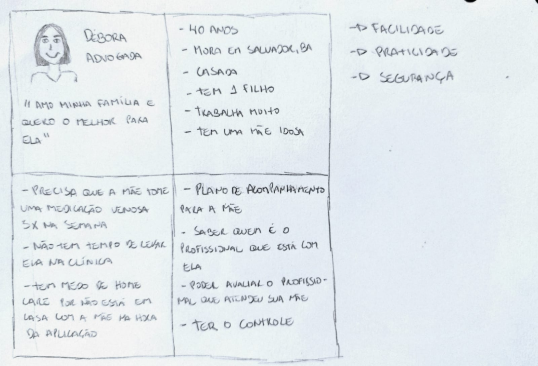 DÉBORA
ADVOGADA
"AMO MINHA FAMÍLIA E
QUERO O MELHOR PARA
ELA"
- 40 ANOS
- MORA EM SALVADOR, BA
- CASADA
- TEM 1 FILHO
- TRABALHA MUITO
- TEM UMA MÃE IDOSA
-> FACILIDADE
-> PRATICIDADE
-> SEGURANÇA
- PRECISA QUE A MÃE TOME
UMA MEDICAÇÃO VENOSA
5X NA SEMANA
- NÃO TEM TEMPO DE LEVAR
ELA NA CLÍNICA
- TEM MEDO DE HOME
CARE POR NÃO ESTÁ EM
CASA COM A MÃE NA HORA
DA APLICAÇÃO
- PLANO DE ACOMPANHAMENTO
PARA A MÃE
- SABER QUEM É O
PROFISSIONAL QUE ESTÁ COM
ELA
- PODER AVALIAR O PROFISSIO-
NAL QUE ATENDEU SUA MÃE
- TER O CONTROLE